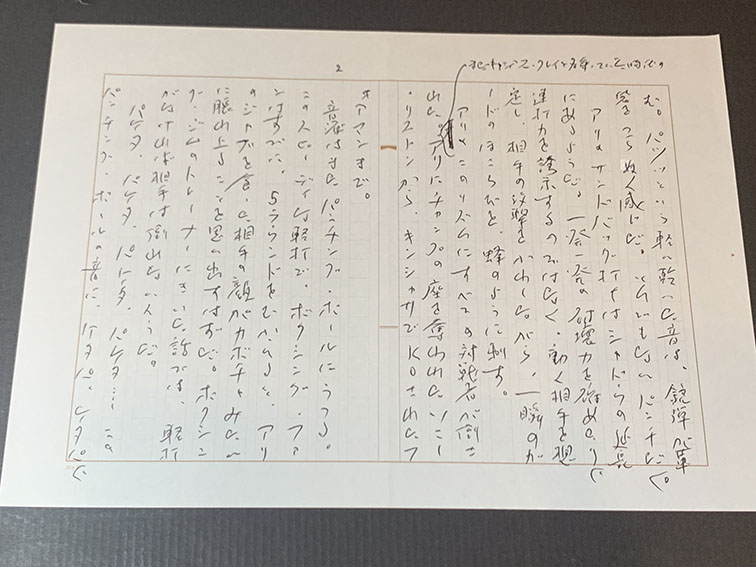 2
まだキャシアス・クレイと名乗っていた時代の
む。パツッという軽い乾いた音は、銃弾が革
袋をつらぬく感じだ。とんでもないパンチだ。
アリのサンドバッグ打ちはシャドウの延長
にあるようだ。一発一発の破壊力を強めたり、
連打力を誇示するのではなく、動く相手を想
定し、相手の攻撃をかわしながら、一瞬のガ
ードのほころびを、蜂のように刺す。
アリのこのリズムにすべての対戦者が倒さ
れた。アリにチャンプの座を奪われたソニー
・リストンから、キンシャサでKOされたフ
ォアマンまで。
音楽はまたパンチング・ボールにうつる。
このスピーディな軽打で、ボクシング・ファ
ンはすでに、5ラウンドをむかえると、アリ
のジャブを食った相手の顔がカボチャみたい
に腫れ上ることを思い出すはずだ。ボクシン
グ・ジムのトレーナーにきいた話では、軽打
がなければ相手は倒れないそうだ。
パタタ、パタタ、パタタ、パタタ… この
パンチング・ボールの音に、